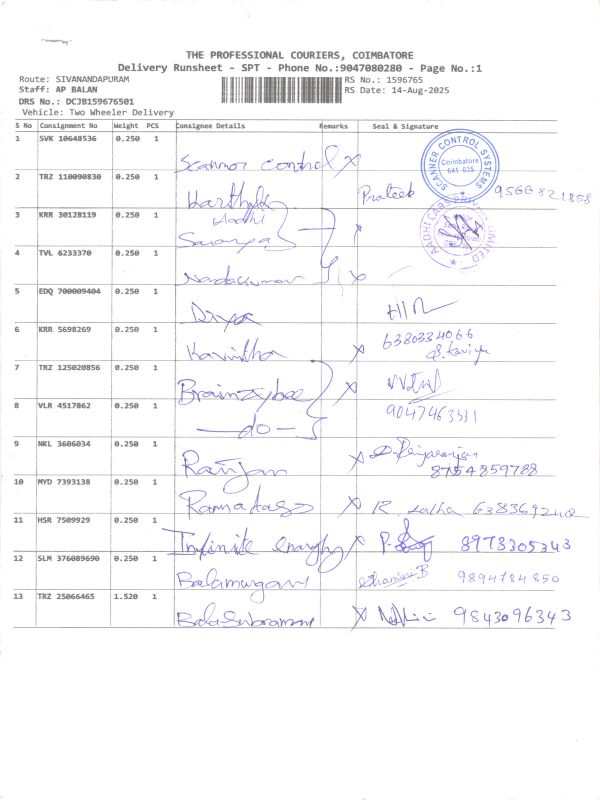 THE PROFESSIONAL COURIERS, COIMBATORE
Delivery Runsheet - SPT - Phone No.:9047080280 - Page No.:1
Route: SIVANANDAPURAM
RS No.: 1596765
Staff: AP BALAN
RS Date: 14-Aug-2025
DRS No.: DCJB159676501
Vehicle: Two Wheeler Delivery
S No Consignment No Weight PCS Consignee Details Remarks Seal & Signature
1 SVK 10648536 0.250 1 Scannor Control X
SCANNER CONTROL SYSTEMS Coimbatore 641 035
2 TRZ 110090830 0.250 1 Karthik Prateek 9566821858
3 KRR 30128119 0.250 1 Aadhi
Saranya
4 TVL 6233370 0.250 1 Nandakumar X
5 EDQ 700009404 0.250 1 Divya
6 KRR 5698269 0.250 1 Kavitha X 6380334066
7 TRZ 125020856 0.250 1 Brainzybee X
8 VLR 4517862 0.250 1 -do- 9047463331
9 NKL 3606034 0.250 1 Ranjan X
8754859788
10 MYD 7393138 0.250 1 X R. Latha
11 HSR 7509929 0.250 1 Infinite energy X 8978305343
12 SLM 376089690 0.250 1 Balamurgan 9894784850
13 TRZ 25066465 1.520 1 BalaSubramany X 9843096343